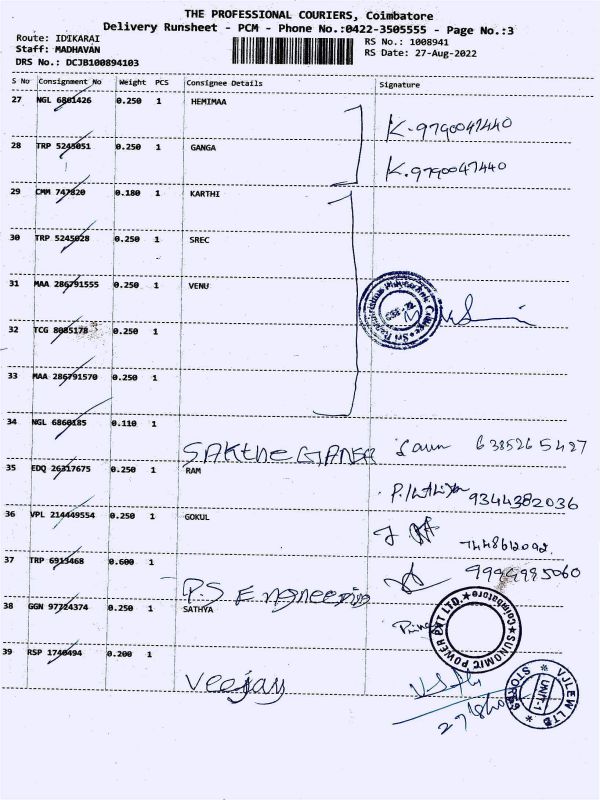 THE PROFESSIONAL COURIERS, Coimbatore
Delivery Runsheet - PCM - Phone No.:0422-3505555 - Page No.:3
Route: IDIKARAI
RS No.: 1008941
Staff: MADHAVAN
RS Date: 27-Aug-2022
DRS No.: DCJB100894103
S No Consignment No Weight PCS Consignee Details Signature
27 NGL 6861426 0.250 1 HEMIMAA
K-9790047440
28 TRP 5245051 0.250 1 GANGA
K.9790047440
29 CMM 747820 0.180 1 KARTHI
30 TRP 5245028 0.250 1 SREC
31 MAA 286791555 0.250 1 VENU
32 TCG 8085178 0.250 1
33 MAA 286791570 0.250 1
34 NGL 6860185 0.110 1
6385265427
35 EDQ 26317675 0.250 1 RAM
9344382036
36 VPL 214449554 0.250 1 GOKUL
37 TRP 6913468 0.600 1
P.S Engineering
38 GGN 97724374 0.250 1 SATHYA
SUNOMIC POWER PVT LTD. Coimbatore
39 RSP 1740494 0.200 1
Veejay
VJLEW LTD STORE UNIT-1